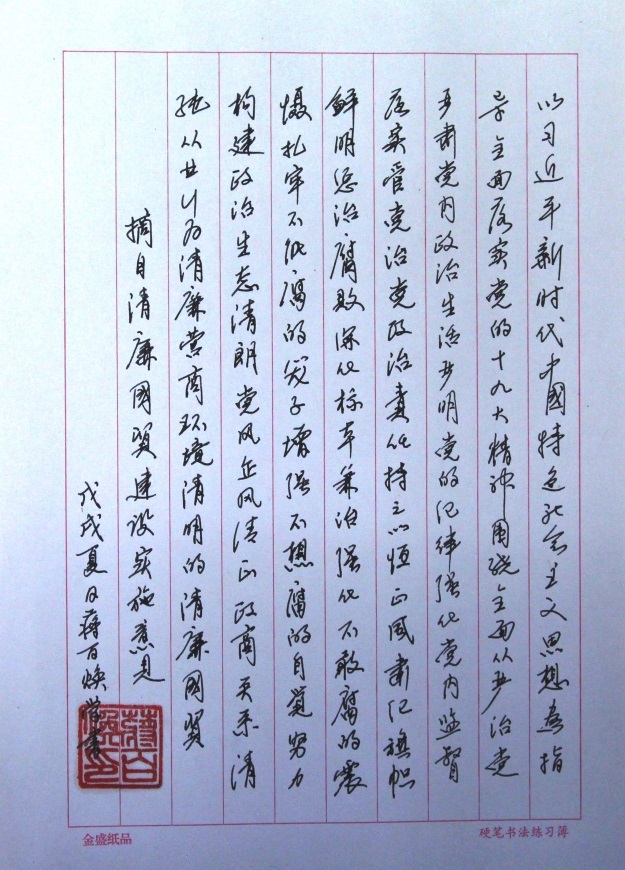 以习近平新时代中國特色社会主义思想为指
导全面落实党的十九大精神围绕全面从严治党
严肃党内政治生活严明党的纪律强化党内监督
落实管党治党政治责任持之以恒正风肃纪旗帜
鲜明惩治腐败深化标本兼治强化不敢腐的震
慑扎牢不能腐的笼子增强不想腐的自觉努力
构建政治生态清朗党风企风清正政商关系清
纯从业行为清廉营商环境清明的清廉國贸
摘自清廉國贸建设实施意见
戊戌夏日蒋百焕学书
硬笔书法练习簿
金盛纸品